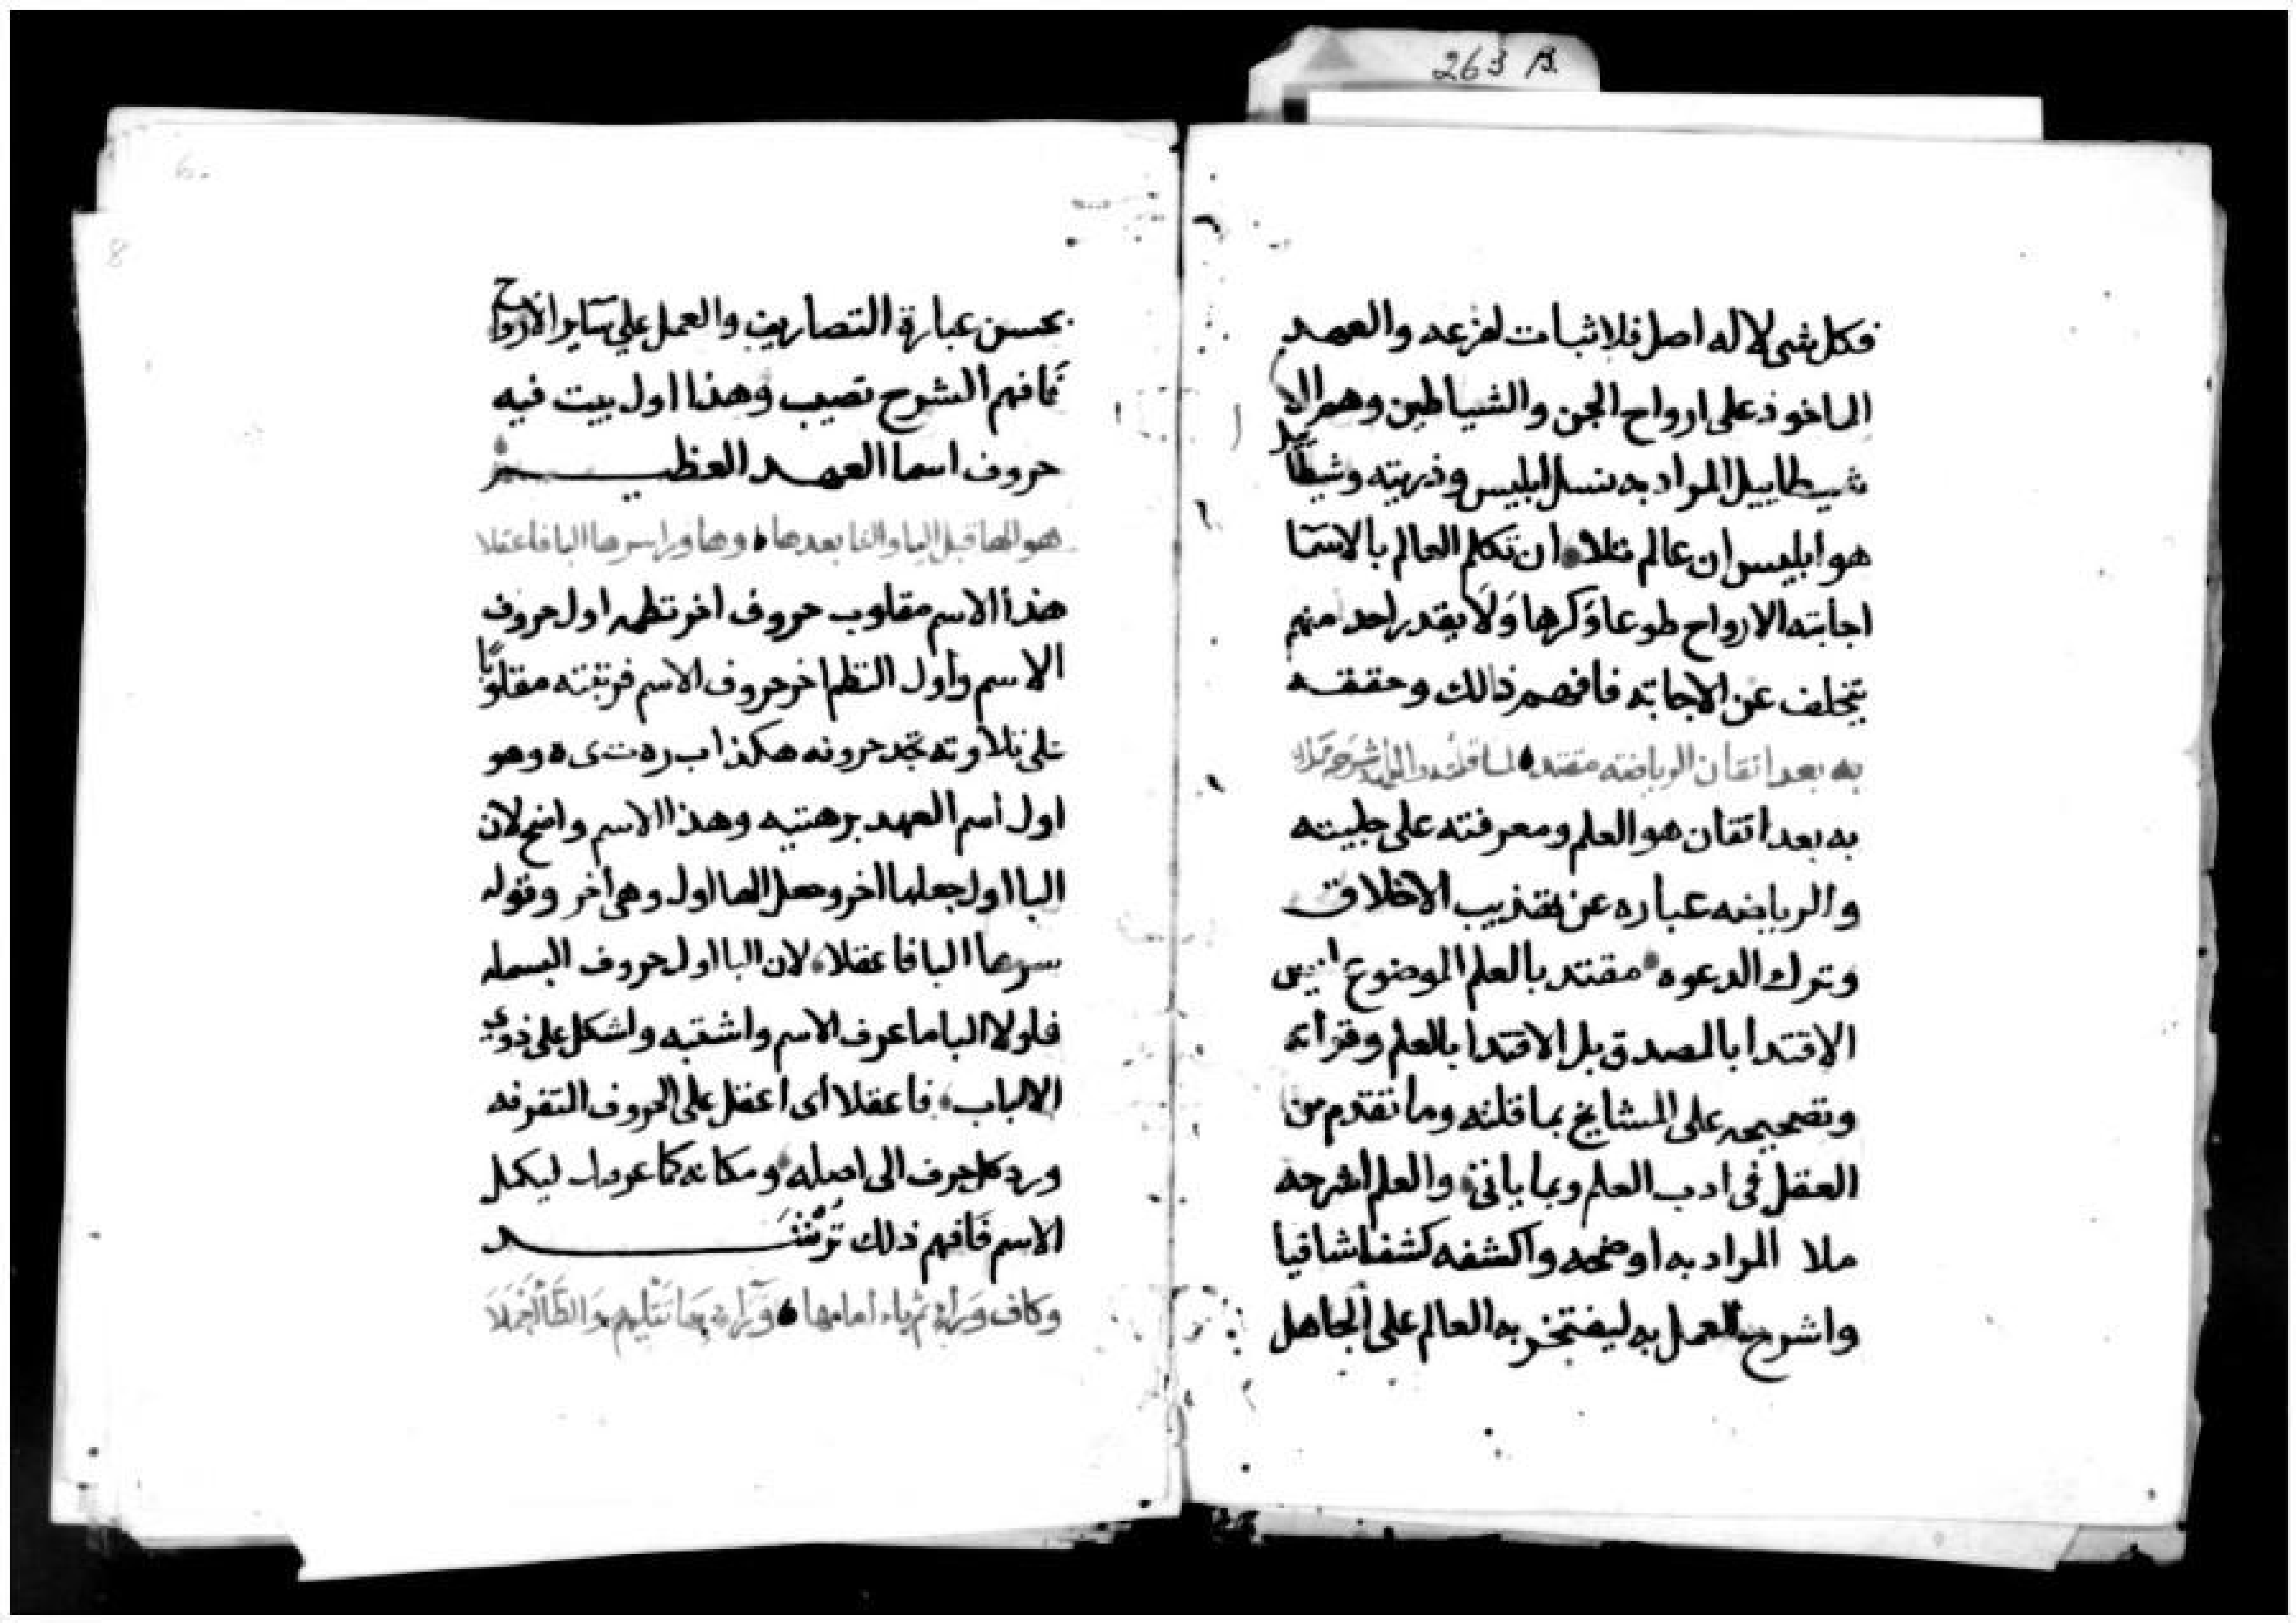 263 B.
فكل شى لا له اصل فلا ثبات لفرعه والعهد
الماخوذ على ارواح الجن والشياطين وهم الا
شيطاييل المراد به نسل ابليس وذريته وشيطا
ييل
هو ابليس ان عالم تلا ان تكلم العالم بالاسما
اجابته الارواح طوعا وَكرها وَلَا يقدر احد منهم
يتخلف عن الاجابة فافهم ذالك وحققه
به بعد اتقان الرياضة مقتد لما قلته والعلم
به بعد اتقان هو العلم ومعرفته على جليته
والرياضه عباره عن تهذيب الاخلاق
وترك الدعوه مقتد بالعلم الموضوع
الاقتدا بالصدق بل الاقتدا بالعلم وقراته
وتصحيحه على المشايخ بما قلته وما تقدم من
العقل فى ادب العلم وبما ياتى والعلم اشرحه
ملا المراد به اوضحه واكشفه كشفا شافيا
واشرح العمل به ليفتخر به العالم على الجاهل
6
8
بحسن عبارة التصاريف والعمل على ساير الارواح
فافهم الشرح تصيب وهذا اول بيت فيه
حروف اسما العهد العظيم
هو الها قبل اليا والتا بعدها وها ورا سرها البا فاعقلا
هذا الاسم مقلوب حروف اخر نظمه اول حروف
الاسم واول النظم اخر حروف الاسم فرتبته مقلوبًا
تلى تلاوته تجد حرونه هكذا ب ر ه ت ى ه وهو
اول اسم العهد برهتيه وهذا الاسم واضح لان
البا اول جعلها اخر وجعل الها اول وهى اخر وقوله
سرها البا فاعقلا لان البا اول حروف البسمله
فلولا البا ما عرف الاسم واشتبه واشكل على ذوي
الالباب فاعقلا اى اعقل على الحروف التفرقه
ورد كل حرف الى اصله ومكانه كما ليكمل
الاسم فَافهم ذلك تُرشَد
وكاف وَراء ثم ياء امامها وَرَاء